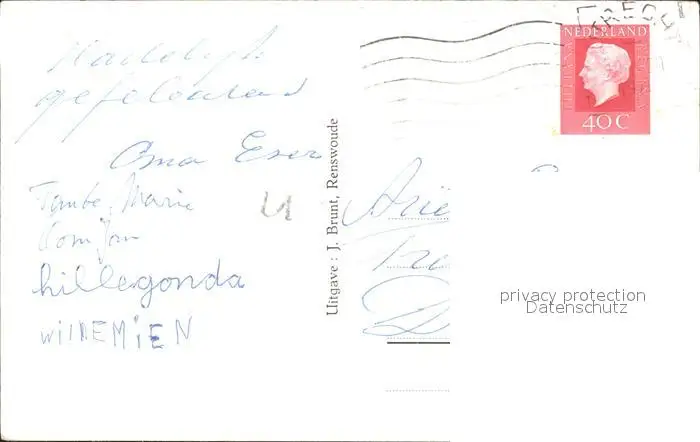 Hartelijk
gefeliciteerd
Oma
Tante Marie
Oom Jan
hillegonda
WILLEMIEN
Uitgave : J. Brunt, Renswoude
NEDERLAND
JULIANA REGINA
40 C
Arië
privacy protection
Datenschutz